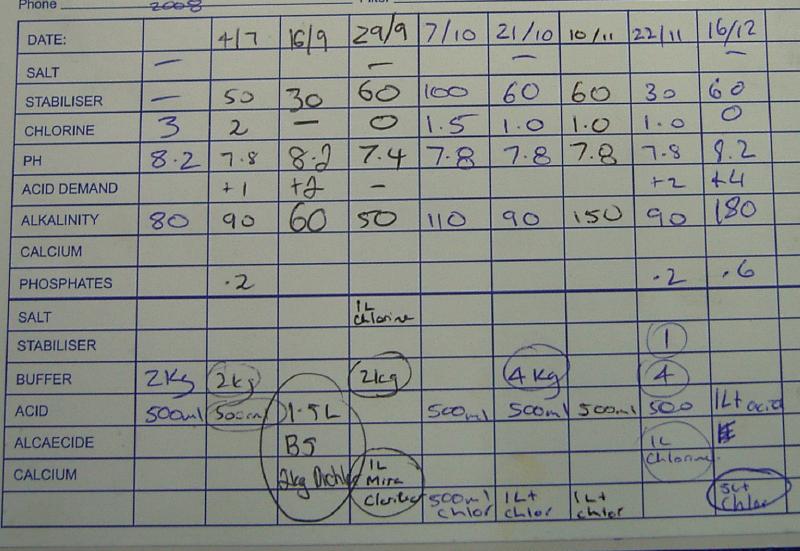 Phone 2008
DATE: 4/7 16/9 29/9 7/10 21/10 10/11 22/11 16/12
SALT — — — —
STABILISER — 50 30 60 100 60 60 30 60
CHLORINE 3 2 — 0 1.5 1.0 1.0 1.0 0
PH 8.2 7.8 8.2 7.4 7.8 7.8 7.8 7.8 8.2
ACID DEMAND +1 +2 — +2 +4
ALKALINITY 80 90 60 50 110 90 150 90 180
CALCIUM
PHOSPHATES .2 .2 .6
SALT 1L chlorine
STABILISER 1
BUFFER 2Kg 2kg 2kg 4Kg 4
ACID 500ml 500ml 1.5L 500ml 500ml 500ml 500 1L+ acid
ALCAECIDE B5 1L Chlorine
CALCIUM 2kg 1L Mira Clarifier
500ml chlor 1L+ chlor 1L+ chlor 5L+ Chlor